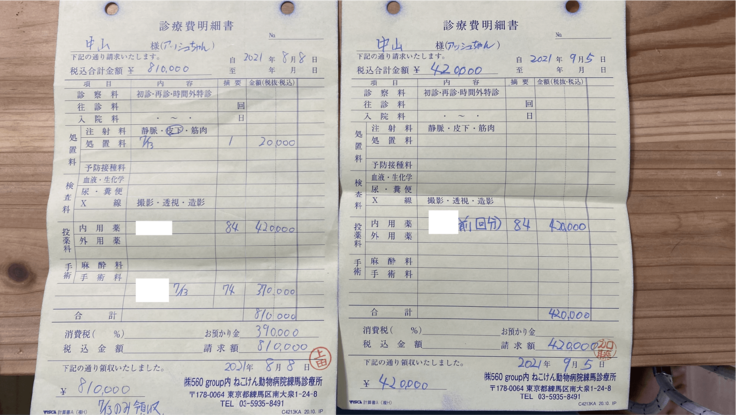 診療費明細書
№
中山 様(アッシュちゃん)
下記の通り請求いたします。
自 2021 年 8 月 8 日
税込合計金額 ¥ 810,000
至 年 月 日
項 目 内 容 摘 要 金額(税抜・税込)
診察料 初診・再診・時間外特診
往診料 回
入院料 ・ ～ ・ 日
処置料
注射料 静脈・皮下・筋肉
処置料 7/13 1 20,000
予防接種料
検査料
血液・生化学
尿・糞便
X線 撮影・透視・造影
投薬料
内用薬 84 420,000
外用薬
手術
麻酔料
手術料
7/13 74 370,000
合計 810,000
消費税( %) お預かり金 390,000
税込金額 請求額 810,000
下記の通り領収いたしました。
2021年 8月 8日
上田
¥ 810,000
㈱560 group内 ねこけん動物病院練馬診療所
〒178-0064 東京都練馬区南大泉1-24-8
TEL 03-5935-8491
診療費明細書
№
中山 様(アッシュちゃん)
下記の通り請求いたします。
自 2021 年 9 月 5 日
税込合計金額 ¥ 420,000
至 年 月 日
項 目 内 容 摘 要 金額(税抜・税込)
診察料 初診・再診・時間外特診
往診料 回
入院料 ・ ～ ・ 日
処置料
注射料 静脈・皮下・筋肉
処置料
予防接種料
検査料
血液・生化学
尿・糞便
X線 撮影・透視・造影
投薬料
内用薬 前1回分) 84 420,000
外用薬
手術
麻酔料
手術料
合計 420,000
消費税( %) お預かり金
税込金額 請求額 420,000
下記の通り領収いたしました。
2021年 9月 5日
¥ 420,000
㈱560 group内 ねこけん動物病院練馬診療所
〒178-0064 東京都練馬区南大泉1-24-8
TEL 03-5935-8491